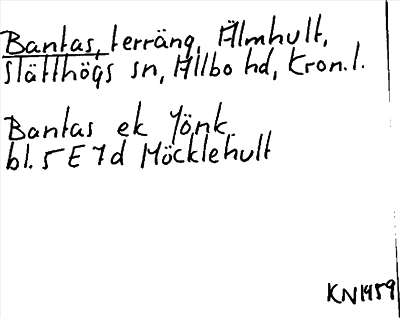 Bantas, terräng, Älmhult,
Slätthögs sn, Allbo hd, Kron.l.
Bantas ek Jönk.
bl. 5 E 7d Möcklehult
KN1959